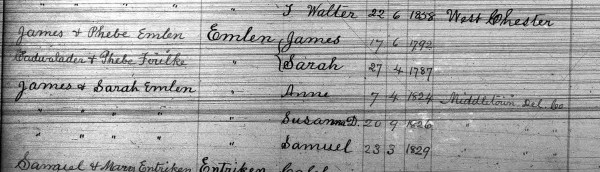 T Walter 22 6 1858 West Chester
James & Phebe Emlen Emlen James 17 6 1792
Cadwalader & Phebe Foulke " Sarah 27 4 1787
James & Sarah Emlen " Anne 7 4 1824 Middletown Del. Co
" " " " Susanna D. 20 9 1826 "
" " " " Samuel 23 3 1829
Samuel & Mary Entriken Entriken Caleb